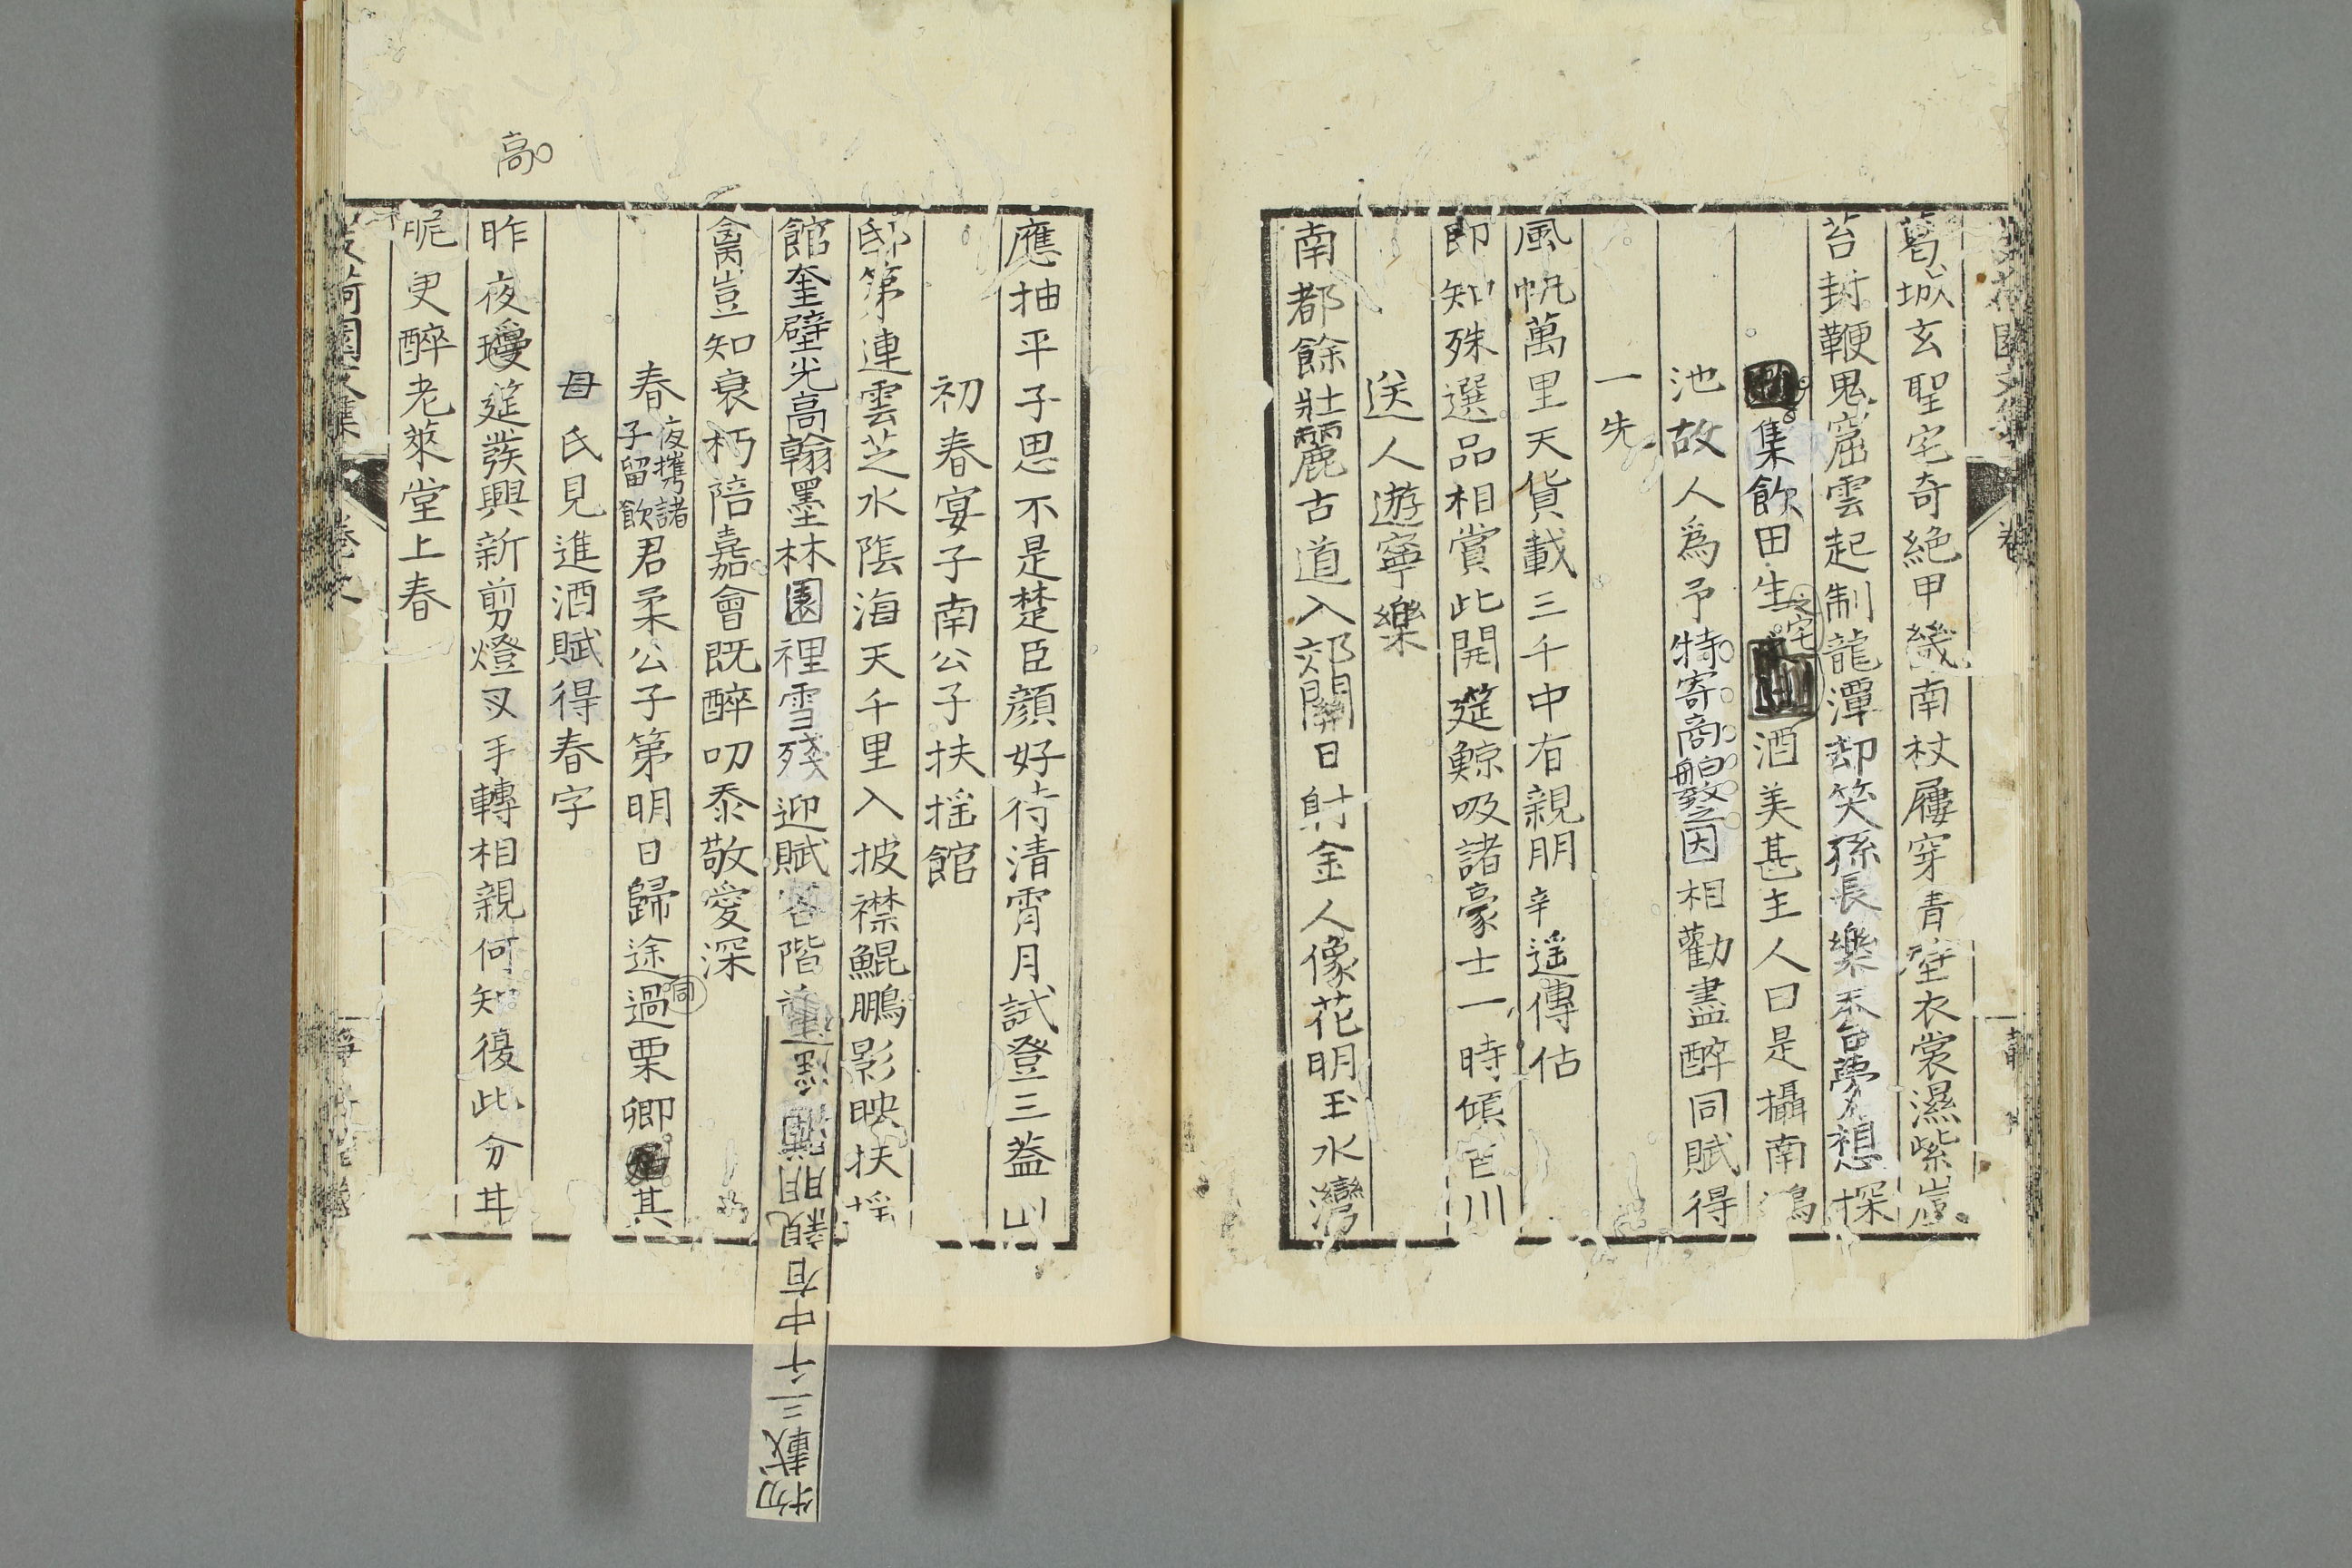 葛城玄聖宅奇絶甲畿南杖屨穿青靄衣裳濕紫嵐
苔封鞭鬼窟雲起制龍潭却笑孫長樂天台夢想探
集飲田生之宅酒美甚主人曰是攝南鴻
池故人爲予特寄商舶致之因相勸盡醉同賦得
一先
風帆萬里天貨載三千中有親朋辛遥傳估
即知殊選品相賞此開筵鯨吸諸豪士一時傾百川
送人遊寧樂
南都餘壯麗古道入郊關日射金人像花明玉水灣
應抽平子思不是楚臣顔好待清霄月試登三蓋山
初春宴子南公子扶揺館
邸第連雲芝水陰海天千里入披襟鯤鵬影映扶揺
館奎壁光高翰墨林園裡雪殘迎賦客階
禽豈知衰朽陪嘉會既醉叨忝敬愛深
春夜攜諸子留飲君柔公子第明日歸途過栗卿其
同
母氏見進酒賦得春字
昨夜瓊筵發興新剪燈叉手轉相親何知復此分甘
昵更醉老萊堂上春
高
物載三千中有親朋